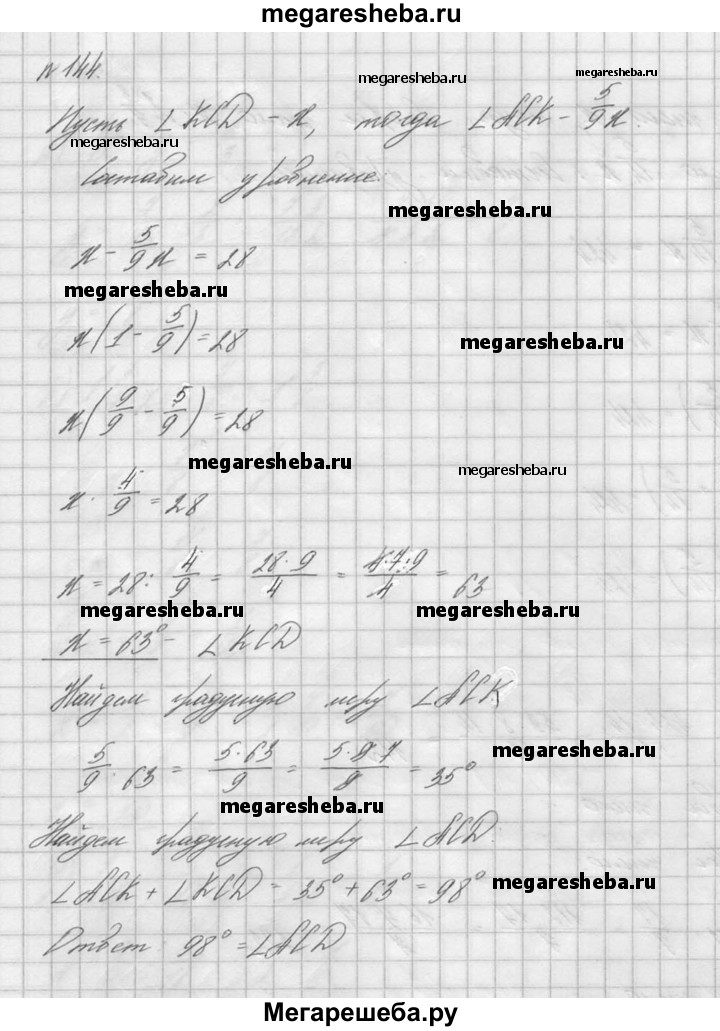 megaresheba.ru
№ 144.
megaresheba.ru
megaresheba.ru
Пусть ∠KCD - x, тогда ∠ACK - 5/9 x.
megaresheba.ru
Составим уравнение:
megaresheba.ru
x - 5/9 x = 28
megaresheba.ru
x(1 - 5/9) = 28
megaresheba.ru
x(9/9 - 5/9) = 28
megaresheba.ru
megaresheba.ru
x · 4/9 = 28
x = 28 : 4/9 = 28·9/4 = 4·7·9/4 = 63
megaresheba.ru
megaresheba.ru
x = 63° - ∠KCD
Найдем градусную меру ∠ACK
5/9 · 63 = 5·63/9 = 5·9·7/9 = 35°
megaresheba.ru
megaresheba.ru
Найдем градусную меру ∠ACD:
∠ACK + ∠KCD = 35° + 63° = 98°
megaresheba.ru
Ответ 98° = ∠ACD
Мегарешеба.ру